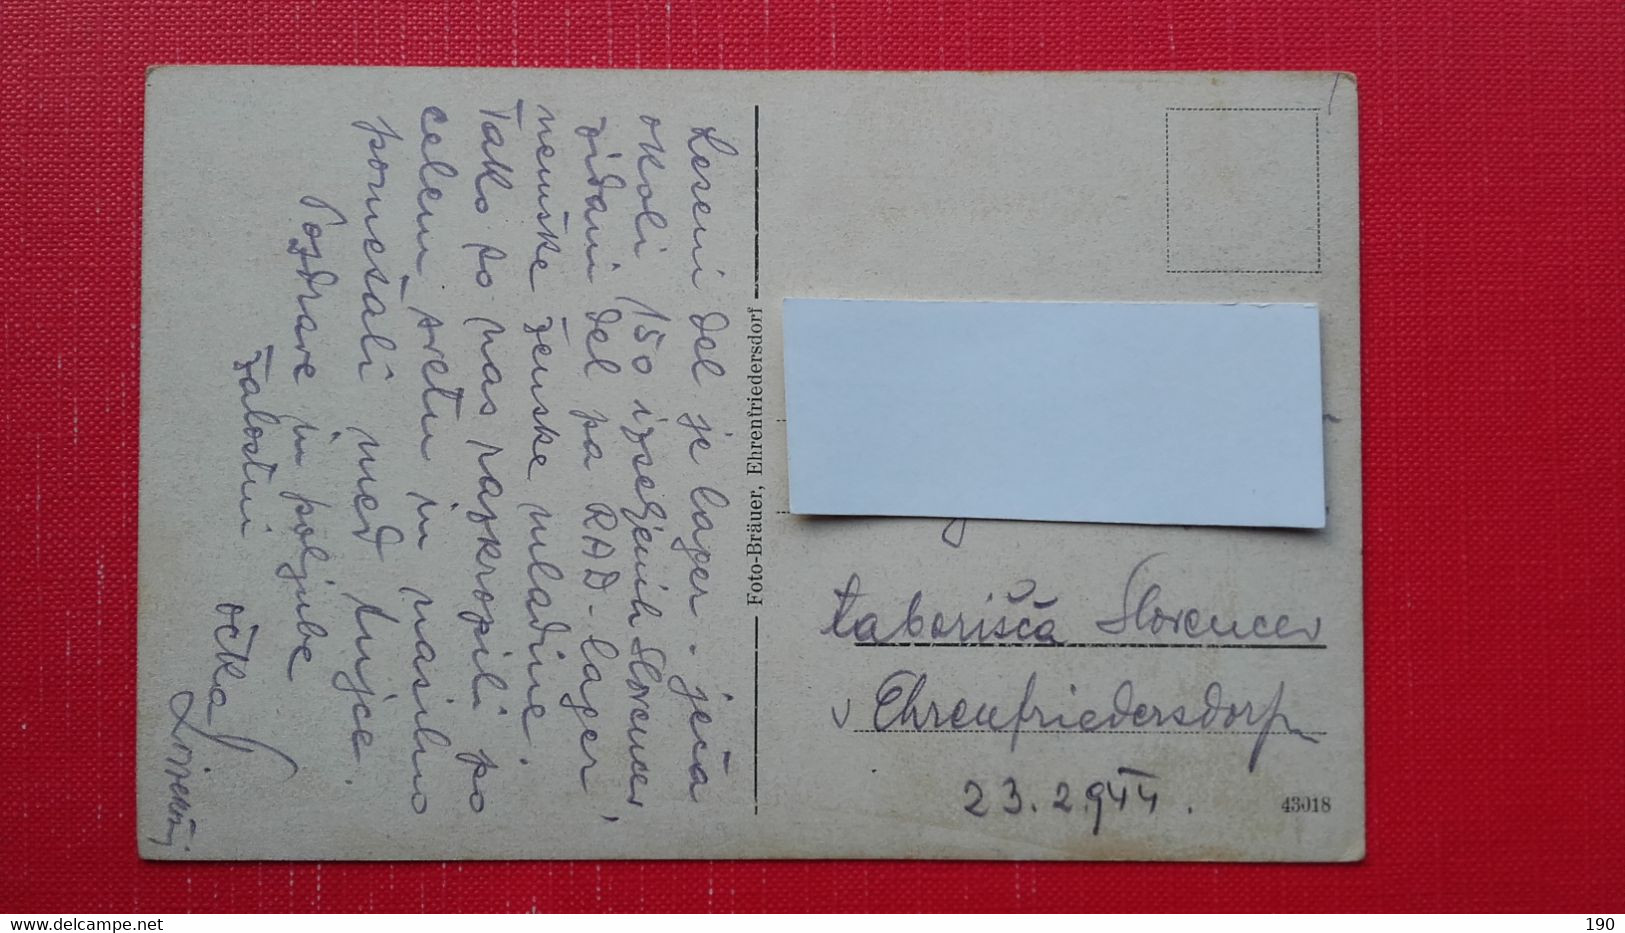 Leseni del je lager - ječa
okoli 150 izseljenih Slovencev,
zidani del pa RAD-lager
nemške ženske mladine.
Tako so nas razkropili po
celem svetu in nasilno
pomešali med tujce.
Pozdrave in poljube
žalostni očka
Foto-Bräuer, Ehrenfriedersdorf
taborišča Slovencev
v Ehrenfriedersdorfu
23.2.944.
43018
delcampe.net
190